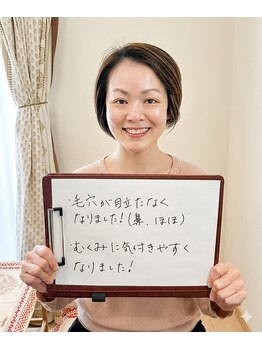 ・毛穴が目立たなく
なりました！（鼻、ほほ）
・むくみに気付きやすく
なりました！